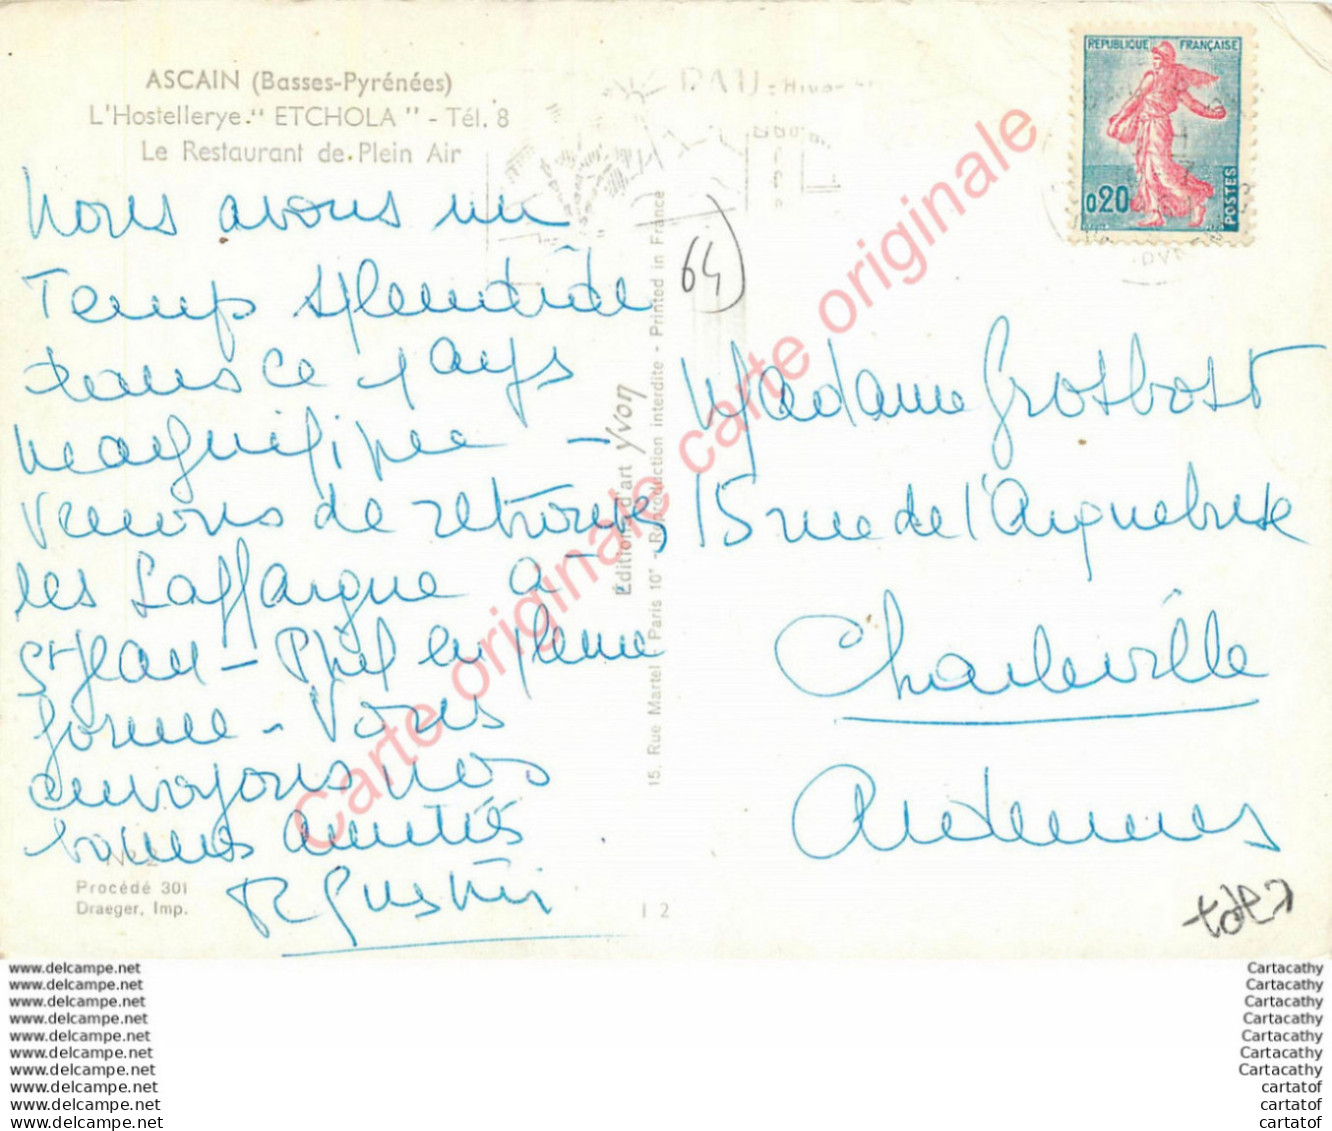 ASCAIN (Basses-Pyrénées)
L'Hostellerye "ETCHOLA" - Tél. 8
Le Restaurant de Plein Air
Nous avons un
Temps splendide
dans ce pays
magnifique -
Venons de retrouver
les Laffargue à
St Jean - Phil en pleine
forme - Vous
envoyons nos
bonnes amitiés
Procédé 301
Draeger, Imp.
Éditions d'art Yvon
15, Rue Martel, Paris 10e - Reproduction interdite - Printed in France
I 2
PAU
64)
REPUBLIQUE FRANÇAISE
0,20
POSTES
Madame Grosbost
15 rue de l'Arquebuse
Charleville
Ardennes
Carte originale carte originale carte originale
www.delcampe.net
www.delcampe.net
www.delcampe.net
www.delcampe.net
www.delcampe.net
www.delcampe.net
www.delcampe.net
www.delcampe.net
www.delcampe.net
www.delcampe.net
Cartacathy
Cartacathy
Cartacathy
Cartacathy
Cartacathy
Cartacathy
Cartacathy
cartatof
cartatof
cartatof